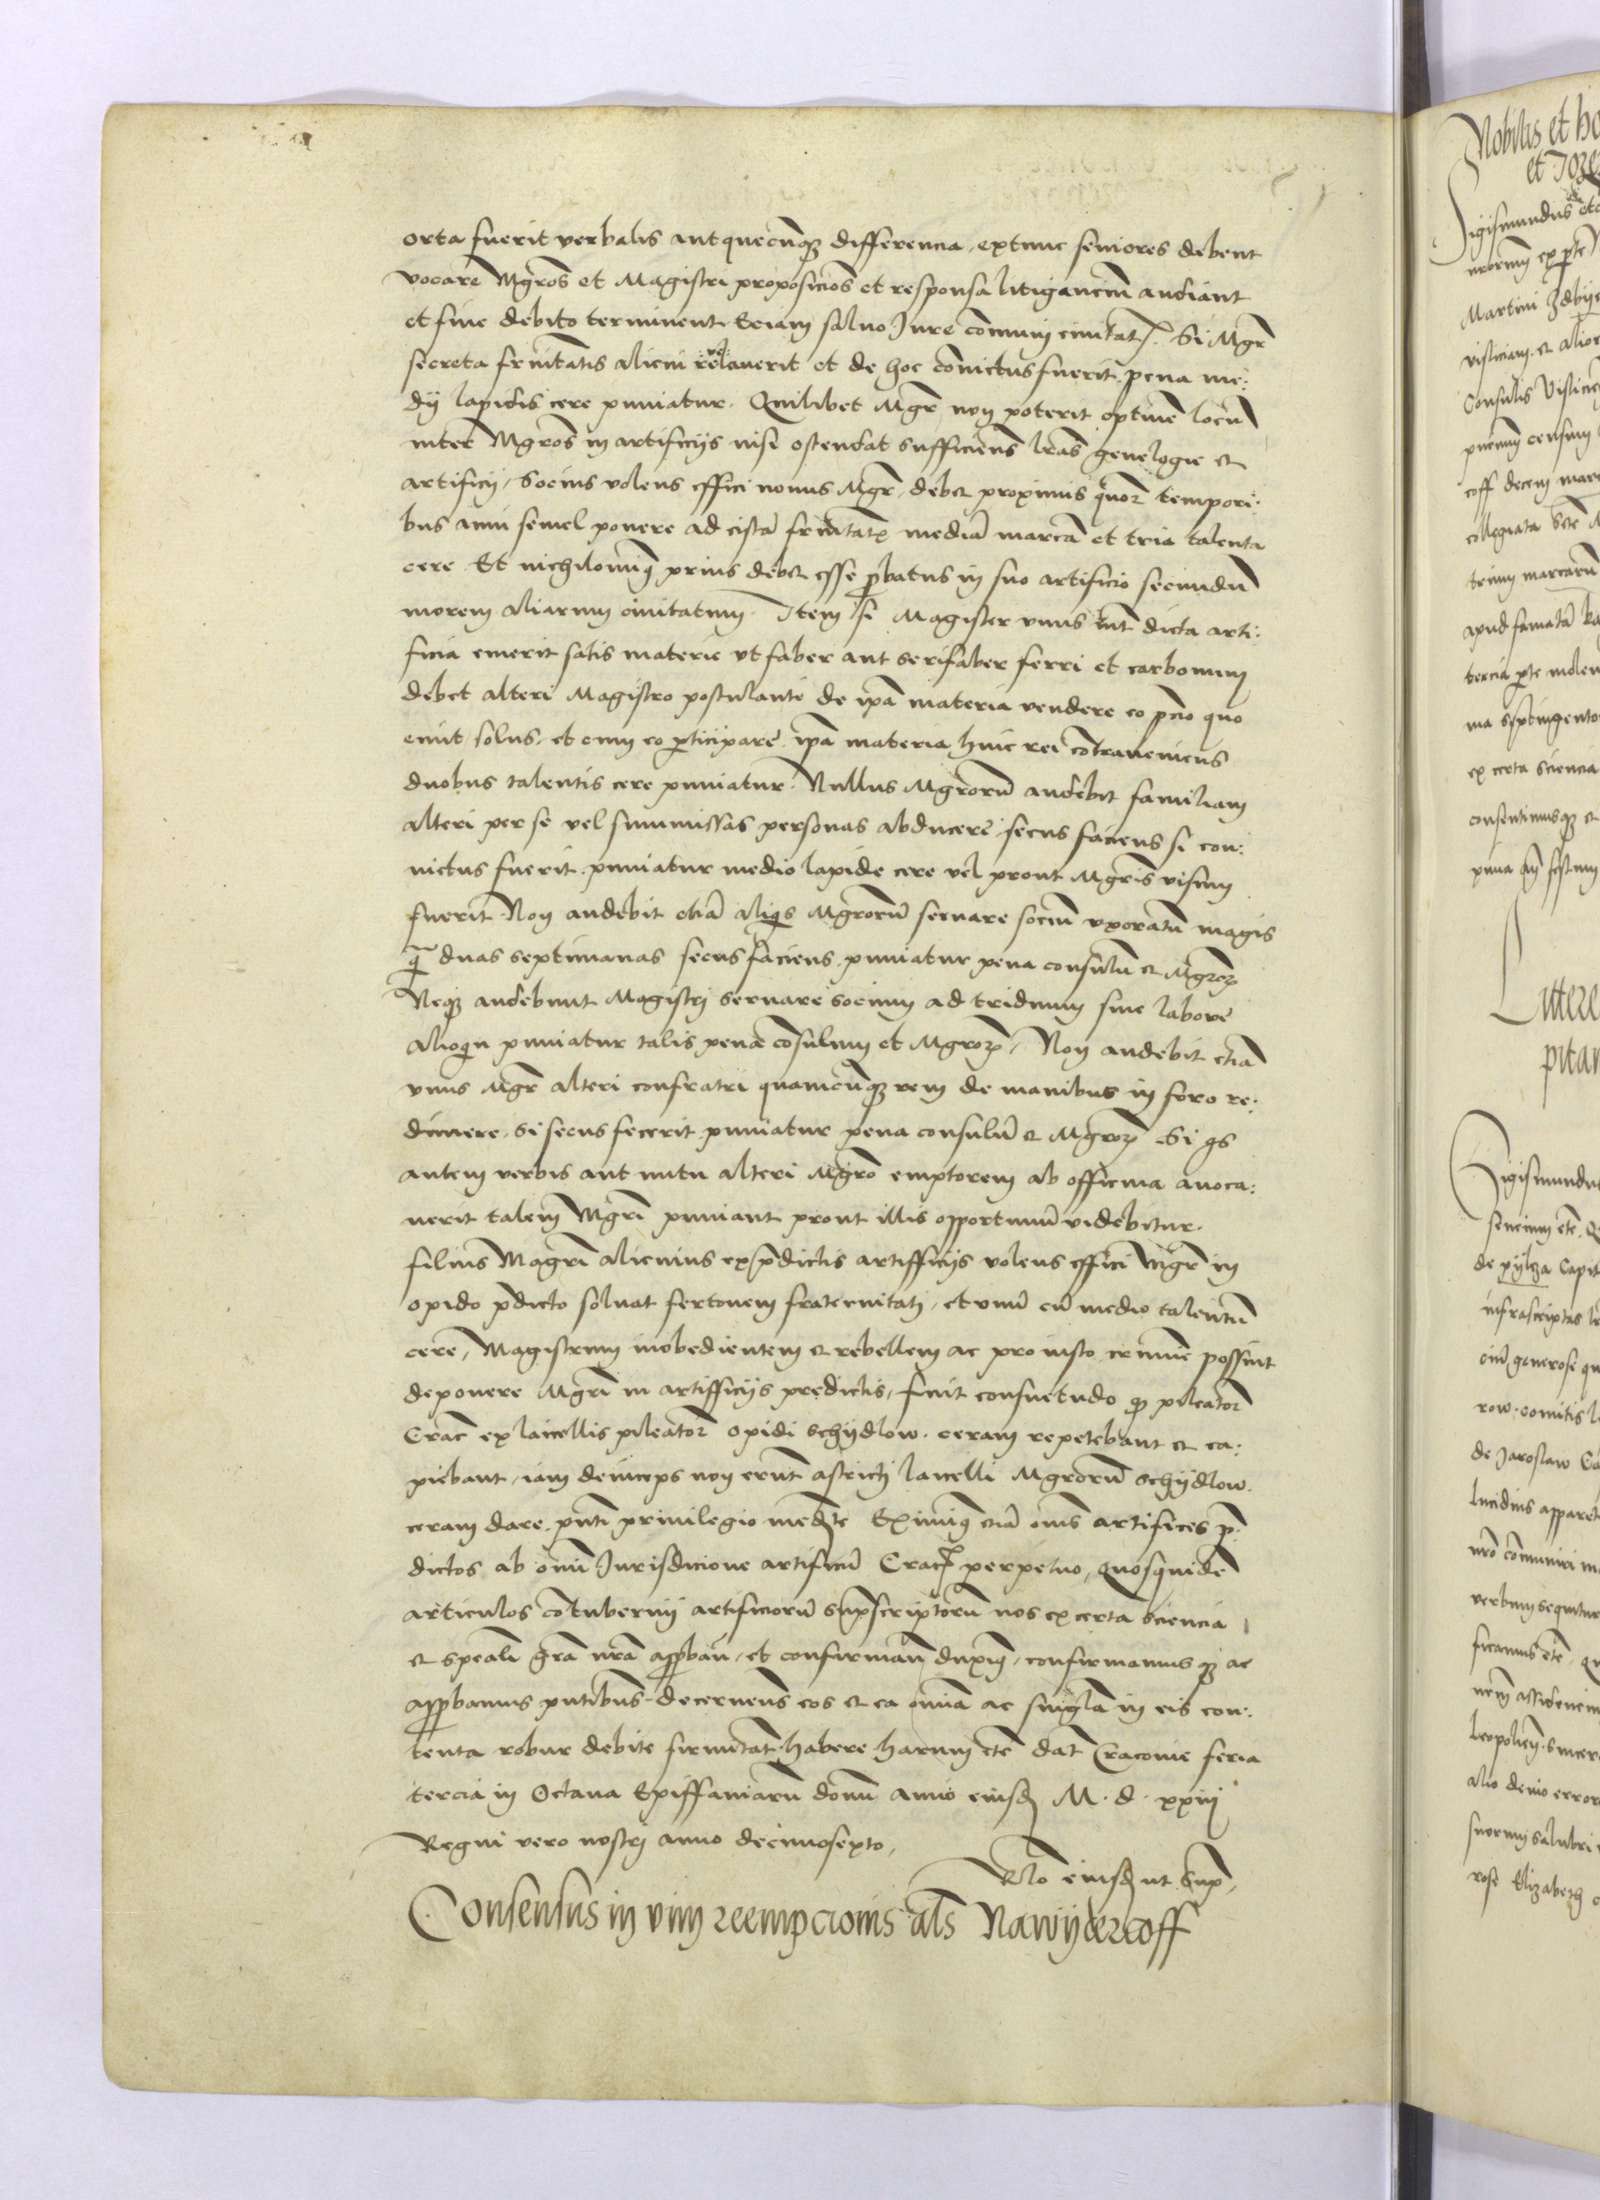 orta fuerit verbalis aut quecunq₃ differencia, extunc seniores debent
vocare Mgros et Magistri proposicios et responsa litiganciu audiant
et fine debito terminent Eciam saluo Jure comuni ciuitat. Si Mgr
secreta frnitatis alicui reuelauerit et de hoc conuictus fuerit pena me:
dij lapidis cere puniatur. Quilibet Mgr non poterit optine locu
inter Mgros in artificijs nisi ostendat sufficiens lras genelogie et
artificij, Socius volens effici nouus Mgr, debet proximis quor tempori:
bus anni semel ponere ad cista frnitatis media marca et tria talenta
cere Et nichilominq prius debet esse pbatus in suo artificio secundu
morem aliarum ciuitatum. Item si Magister vnus int dicta arti:
ficia emerit satis materie vt faber aut serifaber ferri et carbonum
debet alteri Magistro postulante de ipa materia vendere eo pcio quo
emit solus. et cum eo pticipare ipa materia huic rei contraueniens
duobus talentis cere puniatur. Nullus Mgroru audebit familiam
alteri per se vel summissas personas abducere, secus faciens si con:
uictus fuerit puniatur medio lapide cere vel prout Mgris visum
fuerit Non audebit etia aliqs Mgroru seruare sociu vxoratu magis
q duas septimanas secus faciens puniatur pena consulu et Mgror
Neq₃ audebunt Magistri seruare socium ad triduum sine labore
alioqn puniatur talis pena cosulum et Mgror, Non audebit etia
vnus Mgr alteri confratri quamcunq₃ rem de manibus in foro re:
dimere. Si secus fecerit puniatur pena consulu et Mgror Si qs
autem verbis aut nutu alteri Mgro emptorem ab officina auoca:
uerit talem Mgri puniant prout illis opportunu videbitur.
filius Magri alicuius ex pdictis artifficijs volens effici Mgr in
opido pdicto soluat fertonem fraternitati, et vnu cu medio talentu
cere, Magistrum inobedientem et rebellem ac pro iusto crimine possint
deponere Mgri in artifficijs predictis, fuit consuetudo q₃ pileator
Crac ex laicellis pileator opidi Schydlow. ceram repetebant et ca:
piebant, iam deinceps non erut astricti laicelli Mgroru Schydlow.
ceram dare, pnti priuilegio medte Eximimq etia oms artifices p:
dictos ab omi Jurisdicione artificu Crac perpetuo, quosquide
articulos cotubernij artificioru supscriptoru nos ex certa sciencia
et speali gra nra appban, et confirman duxim, confirmamus q₃ ac
appbamus pntibus decernens eos et ea omia ac singla in eis con:
tenta robur debite firmitat habere harum etc dat Cracouie feria
tercia in Octaua Epiffaniaru domi anno eiusd M. d. xxiij
Regni vero nostri anno decimosexto,
Rlo eiusd ut sup,
Consensus in vim reempcionis als Nawyderkoff
Nobilis et ho
et Joze
Sigismundus etc
uxorum ex pte
Martini Zdbye
visliciam. et alior
Consulis Vislicie
pncium censum
coff decem marc
collegiata Scte M
trium marcaru
apud famata
tercia pte molen
ma septingento
ex certa sciencia
consentimusq₃ et
Littere
pitan
Sigismundu
de pylcza Capit
infrascriptas l
omi generose qu
row. comitis l
de Jaroslaw Ca
lucidius apparet
nro comuniri m
verbum sequitur
ficamus etc qu
leopolien. sincer
alio deuio error
suorum salubri
rose Elizabeth c